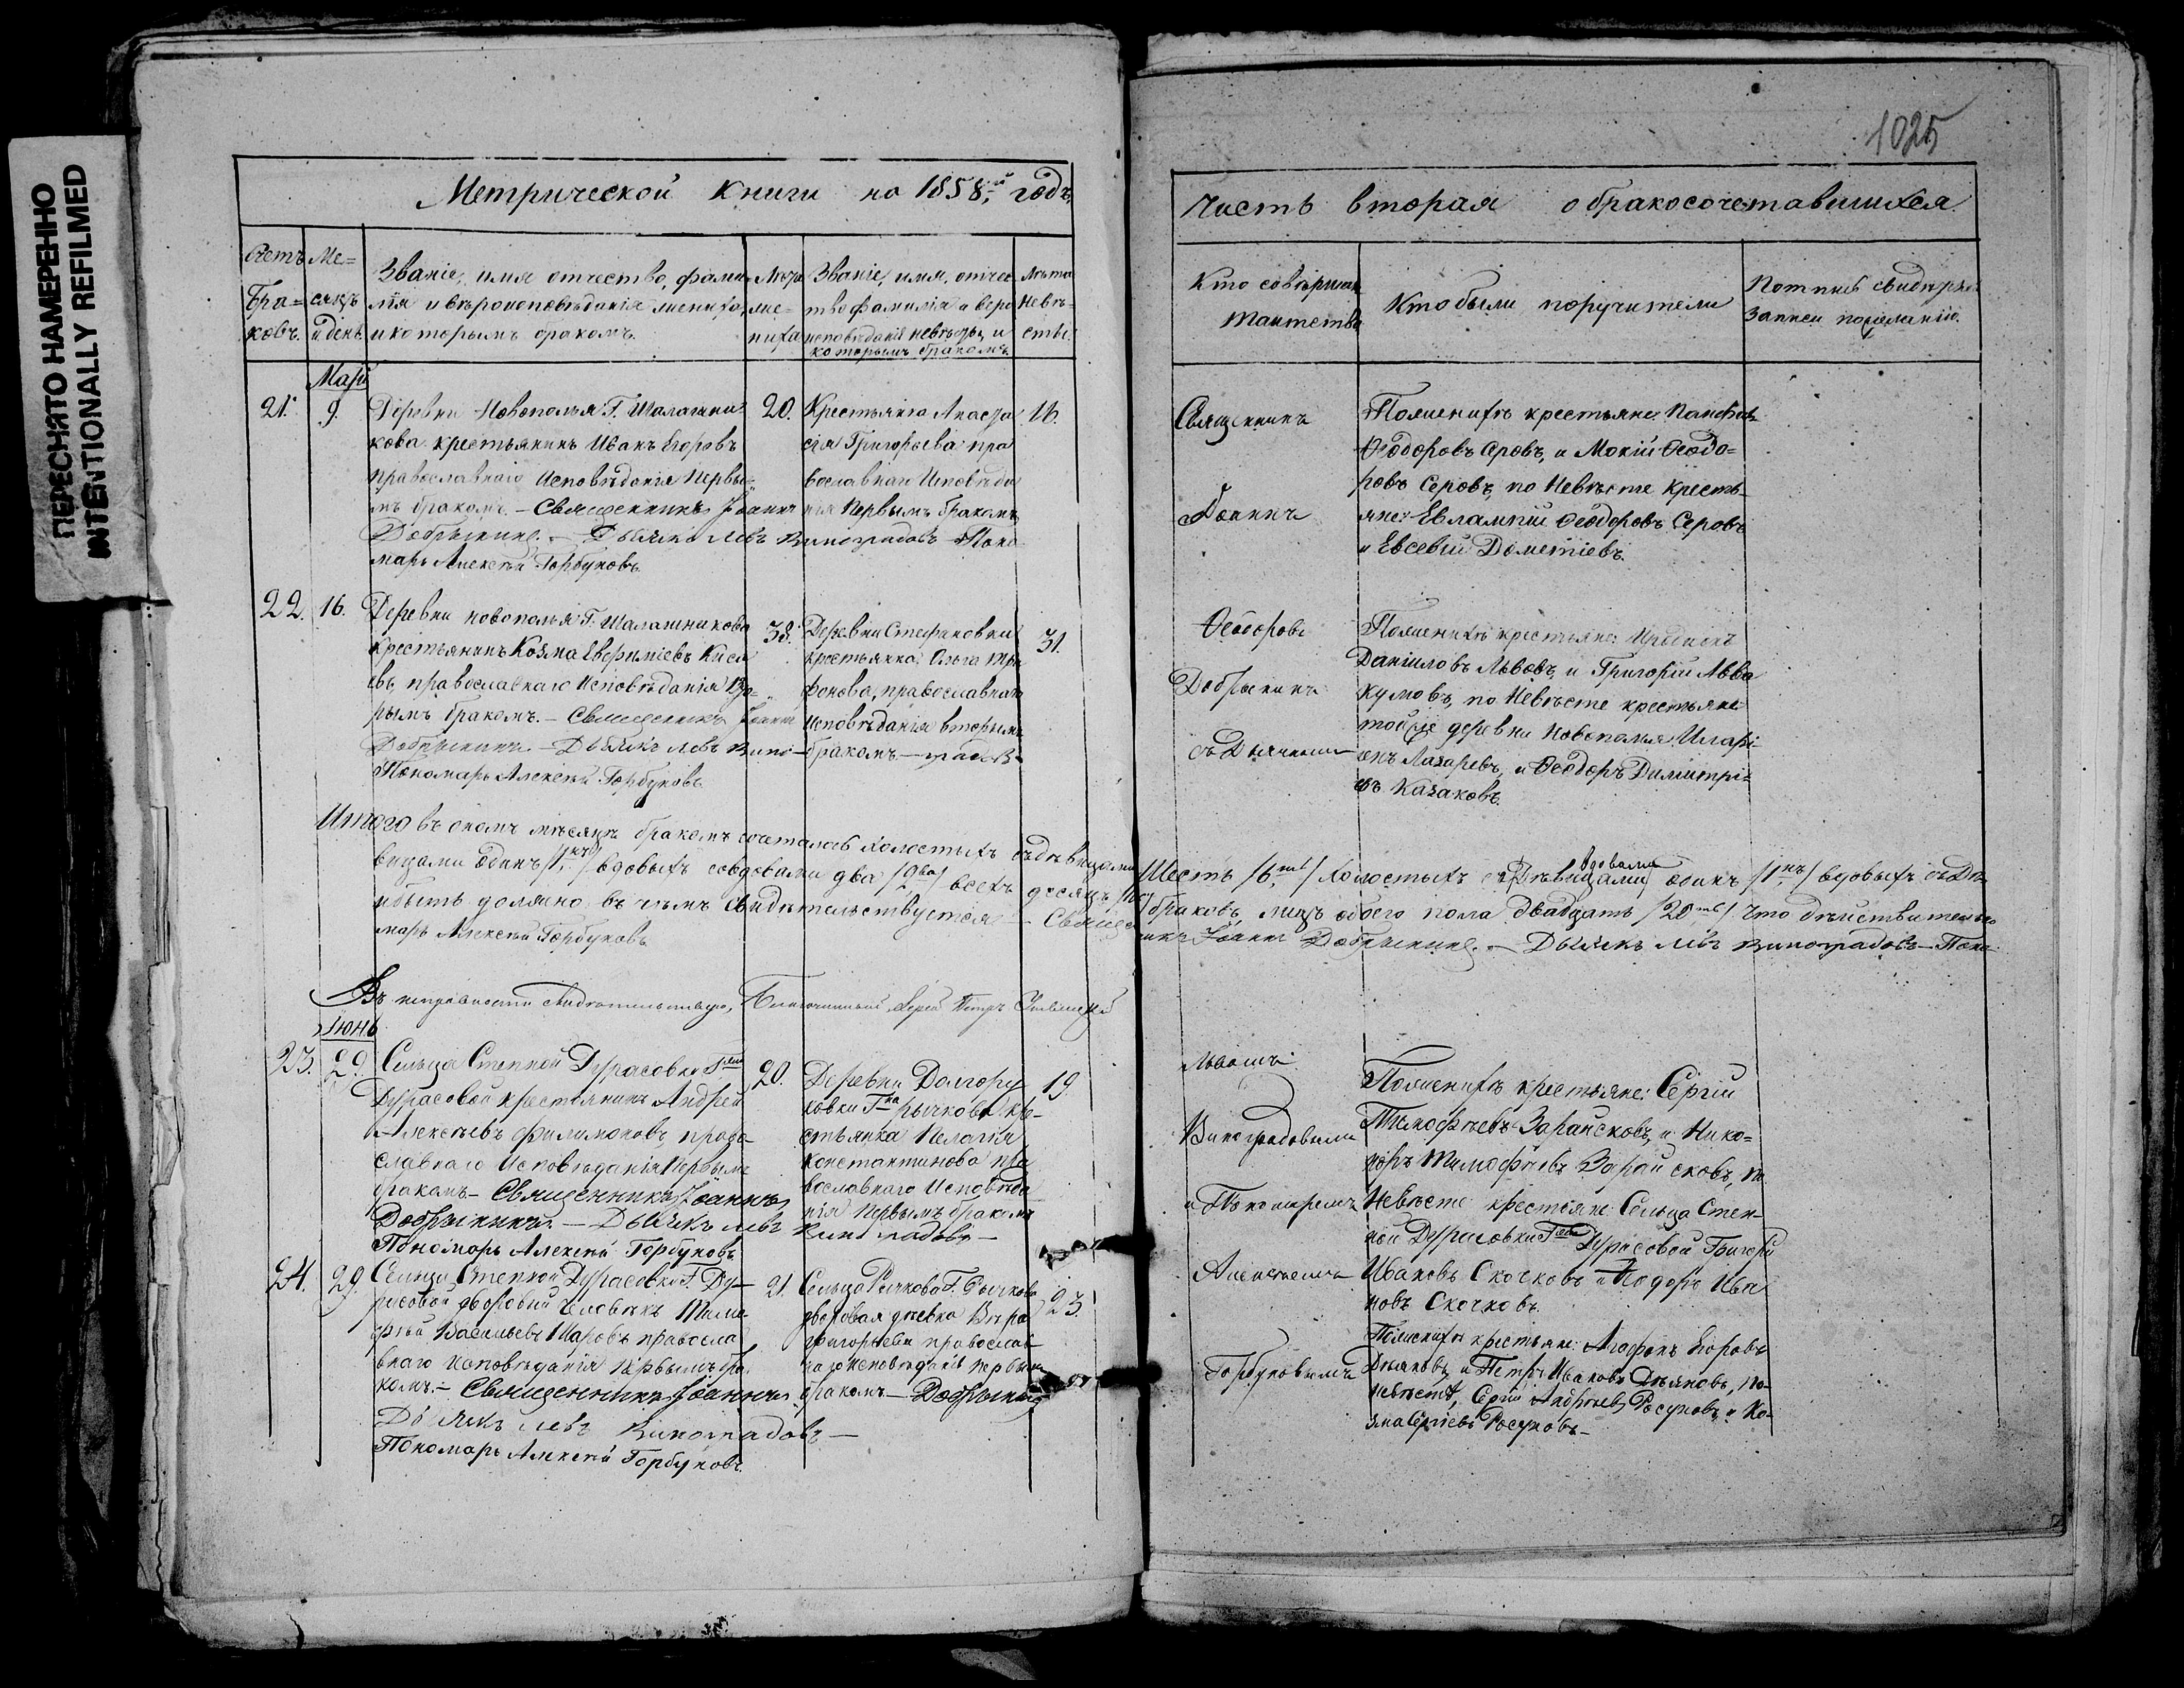 ПЕРЕСНЯТО НАМЕРЕННО
INTENTIONALLY REFILMED
1025
Метрической книги на 1858й годъ,
Часть вторая о бракосочетавшихся.
Счетъ Браковъ.
Месяцъ и день.
Званіе, имя отчество, фамилія и вѣроисповѣданія жениха, и которымъ бракомъ.
Лѣта жениха
Званіе, имя, отчество фамилія и веро исповѣданіе невѣсты, и которымъ бракомъ.
Лѣта невѣсты.
Кто совѣршалъ таинство
Кто были поручители
Май
21. 9.
Деревни Новополья Г. Шалашни
кова крестьянинъ Иванъ Егоровъ
православнаго Исповѣданія Первы
мъ бракомъ. – Священникъ Іоаннъ
Добрынинъ. – Дьячекъ Левъ Виноградовъ Поно
марь Алексѣй Горбуновъ.
20.
Крестьянка Анаста
сія Григорьева пра
вославнаго Исповѣда
нія Первымъ бракомъ
Священникъ
Іоаннъ
Поженихѣ крестьяне:
Ѳеодоровъ Серовъ, и Мокій Ѳеодо=
ровъ Серовъ, по Невѣсте Кресть-
яне: Евлампій Ѳеодоровъ Серовъ
и Евсевій Дометіевъ.
22. 16.
Деревни новополья Г. Шалашникова
крестьянинъ Козма Евфиміевъ
православнаго Исповѣданія Вто=
рымъ бракомъ. – Священникъ Іоаннъ
Добрынинъ. – Дьячекъ левъ Вино-
Пономарь Алексѣй Горбуновъ.
38.
Деревни Стефановки
крестьянка Ольга Три
фонова, православнаго
Исповѣданія вторымъ
бракомъ. – градовъ
31.
Ѳеодоровъ
Добрынинъ
съ Дьячкомъ
Поженихѣ крестьяне:
Даніиловъ Львовъ, и Григорій Авва
кумовъ, по Невѣсте крестьяне
тойже деревни Новополья Иларі-
онъ Лазаревъ, и Ѳеодоръ Димитрі=
евъ Казаковъ.
Итого въ ономъ мѣсяцѣ бракомъ сочеталось холостыхъ съ дѣвицами Шесть /6ть/ Холостыхъ съ Дѣвицами вдовами одинъ /1нъ/ вдовыхъ съ Дѣ
вицами одинъ /1нъ/ вдовыхъ совдовами два /2ва/ всехъ десять браковъ, лицъ обоего пола двадцать /20ть/ Что дѣйствительно
и быть должно въ чѣмъ свидѣтельствуется – Священникъ Іоаннъ Добрынинъ. – Дьячекъ левъ Виноградовъ – Поно
марь Алексѣй Горбуновъ
Въ исправности свидетельствую, Благочинный Іерей Петръ
Іюнь
23. 29.
Сельца Степной Дурасовки Гжи
Дурасовой крестьянинъ Андрей
Алексѣевъ Филимоновъ, право
славнаго Исповѣданія Первымъ
бракомъ – Священникъ Іоаннъ
Добрынинъ. – Дьячекъ левъ Виноградовъ –
Пономарь Алексѣй Горбуновъ
20.
Деревни Долгору
ковки Гна Рычкова кре-
стьянка Пелагія
Константинова пра
вославнаго Исповѣда
нія Первымъ бракомъ
19.
Львомъ
Виноградовымъ
и Пономаремъ
Поженихѣ крестьяне: Сергій
Тимофѣевъ Зарайсковъ, и Нико=
норъ Тимофѣевъ Зарайсковъ, по
Невѣсте крестьяне Сельца Степ-
ной Дурасовки Гжи Дурасовой Григорій
Ивановъ Скочковъ и Ѳеодоръ Ива
новъ Скочковъ.
24. 29.
Сельца Степной Дурасовки Г. Ду-
расовой дворовый Человѣкъ Тимо-
фѣй Васильевъ Шаровъ правосла
внаго Исповѣданія Первымъ бра
комъ. – Священникъ Іоаннъ Добрынинъ
Дьячекъ левъ Виноградовъ –
Пономарь Алексѣй Горбуновъ.
21.
Сельца Рычкова Г. Рычкова
дворовая девка Вѣра
Григорьева православ
наго Исповѣданія первымъ
бракомъ –
23
Алексѣемъ
Горбуновымъ
Поженихѣ крестьяне: Агафонъ Егоровъ
Дьяковъ, и Петръ Ивановъ Дьяковъ, по
невѣсте, Сергій Андреевъ Росуновъ и Ко-
зма Сергіевъ Росуновъ –